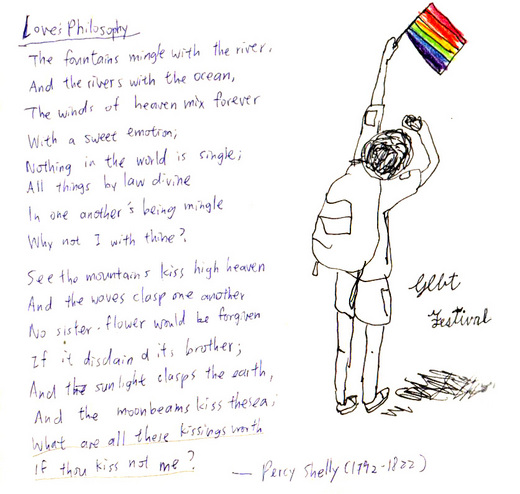 Love's Philosophy
The fountains mingle with the river,
And the rivers with the ocean,
The winds of heaven mix forever
With a sweet emotion;
Nothing in the world is single;
All things by law divine
In one another's being mingle
Why not I with thine?
See the mountains kiss high heaven
And the waves clasp one another
No sister-flower would be forgiven
If it disdain d its brother;
And the sunlight clasps the earth,
And the moonbeams kiss thesea;
What are all these kissings worth
If thou kiss not me?
— Percy Shelly (1792-1822)
Glbt
Festival